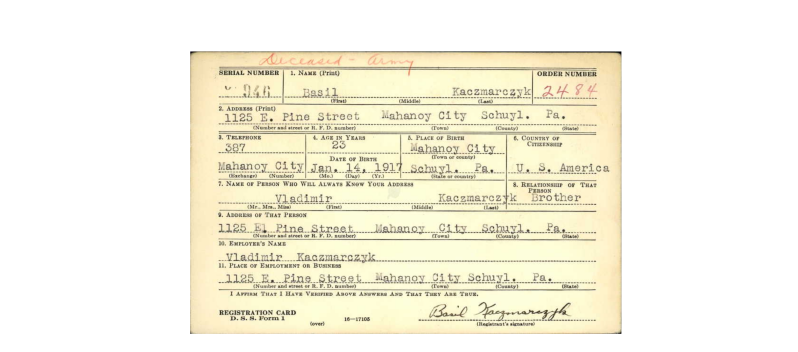 Deceased - Army
SERIAL NUMBER 1. NAME (Print) ORDER NUMBER
946 Basil Kaczmarczyk 2484
(First) (Middle) (Last)
2. ADDRESS (Print)
1125 E. Pine Street Mahanoy City Schuyl. Pa.
(Number and street or R. F. D. number) (Town) (County) (State)
3. TELEPHONE 4. AGE IN YEARS 5. PLACE OF BIRTH 6. COUNTRY OF CITIZENSHIP
387 23 Mahanoy City
DATE OF BIRTH (Town or county)
Mahanoy City Jan. 14, 1917 Schuyl. Pa. U. S. America
(Exchange) (Number) (Mo.) (Day) (Yr.) (State or country)
7. NAME OF PERSON WHO WILL ALWAYS KNOW YOUR ADDRESS 8. RELATIONSHIP OF THAT PERSON
Vladimir Kaczmarczyk Brother
(Mr., Mrs., Miss) (First) (Middle) (Last)
9. ADDRESS OF THAT PERSON
1125 E. Pine Street Mahanoy City Schuyl. Pa.
(Number and street or R. F. D. number) (Town) (County) (State)
10. EMPLOYER'S NAME
Vladimir Kaczmarczyk
11. PLACE OF EMPLOYMENT OR BUSINESS
1125 E. Pine Street Mahanoy City Schuyl. Pa.
(Number and street or R. F. D. number) (Town) (County) (State)
I AFFIRM THAT I HAVE VERIFIED ABOVE ANSWERS AND THAT THEY ARE TRUE.
REGISTRATION CARD Basil Kaczmarczyk
D. S. S. Form 1 (over) 16—17105 (Registrant's signature)